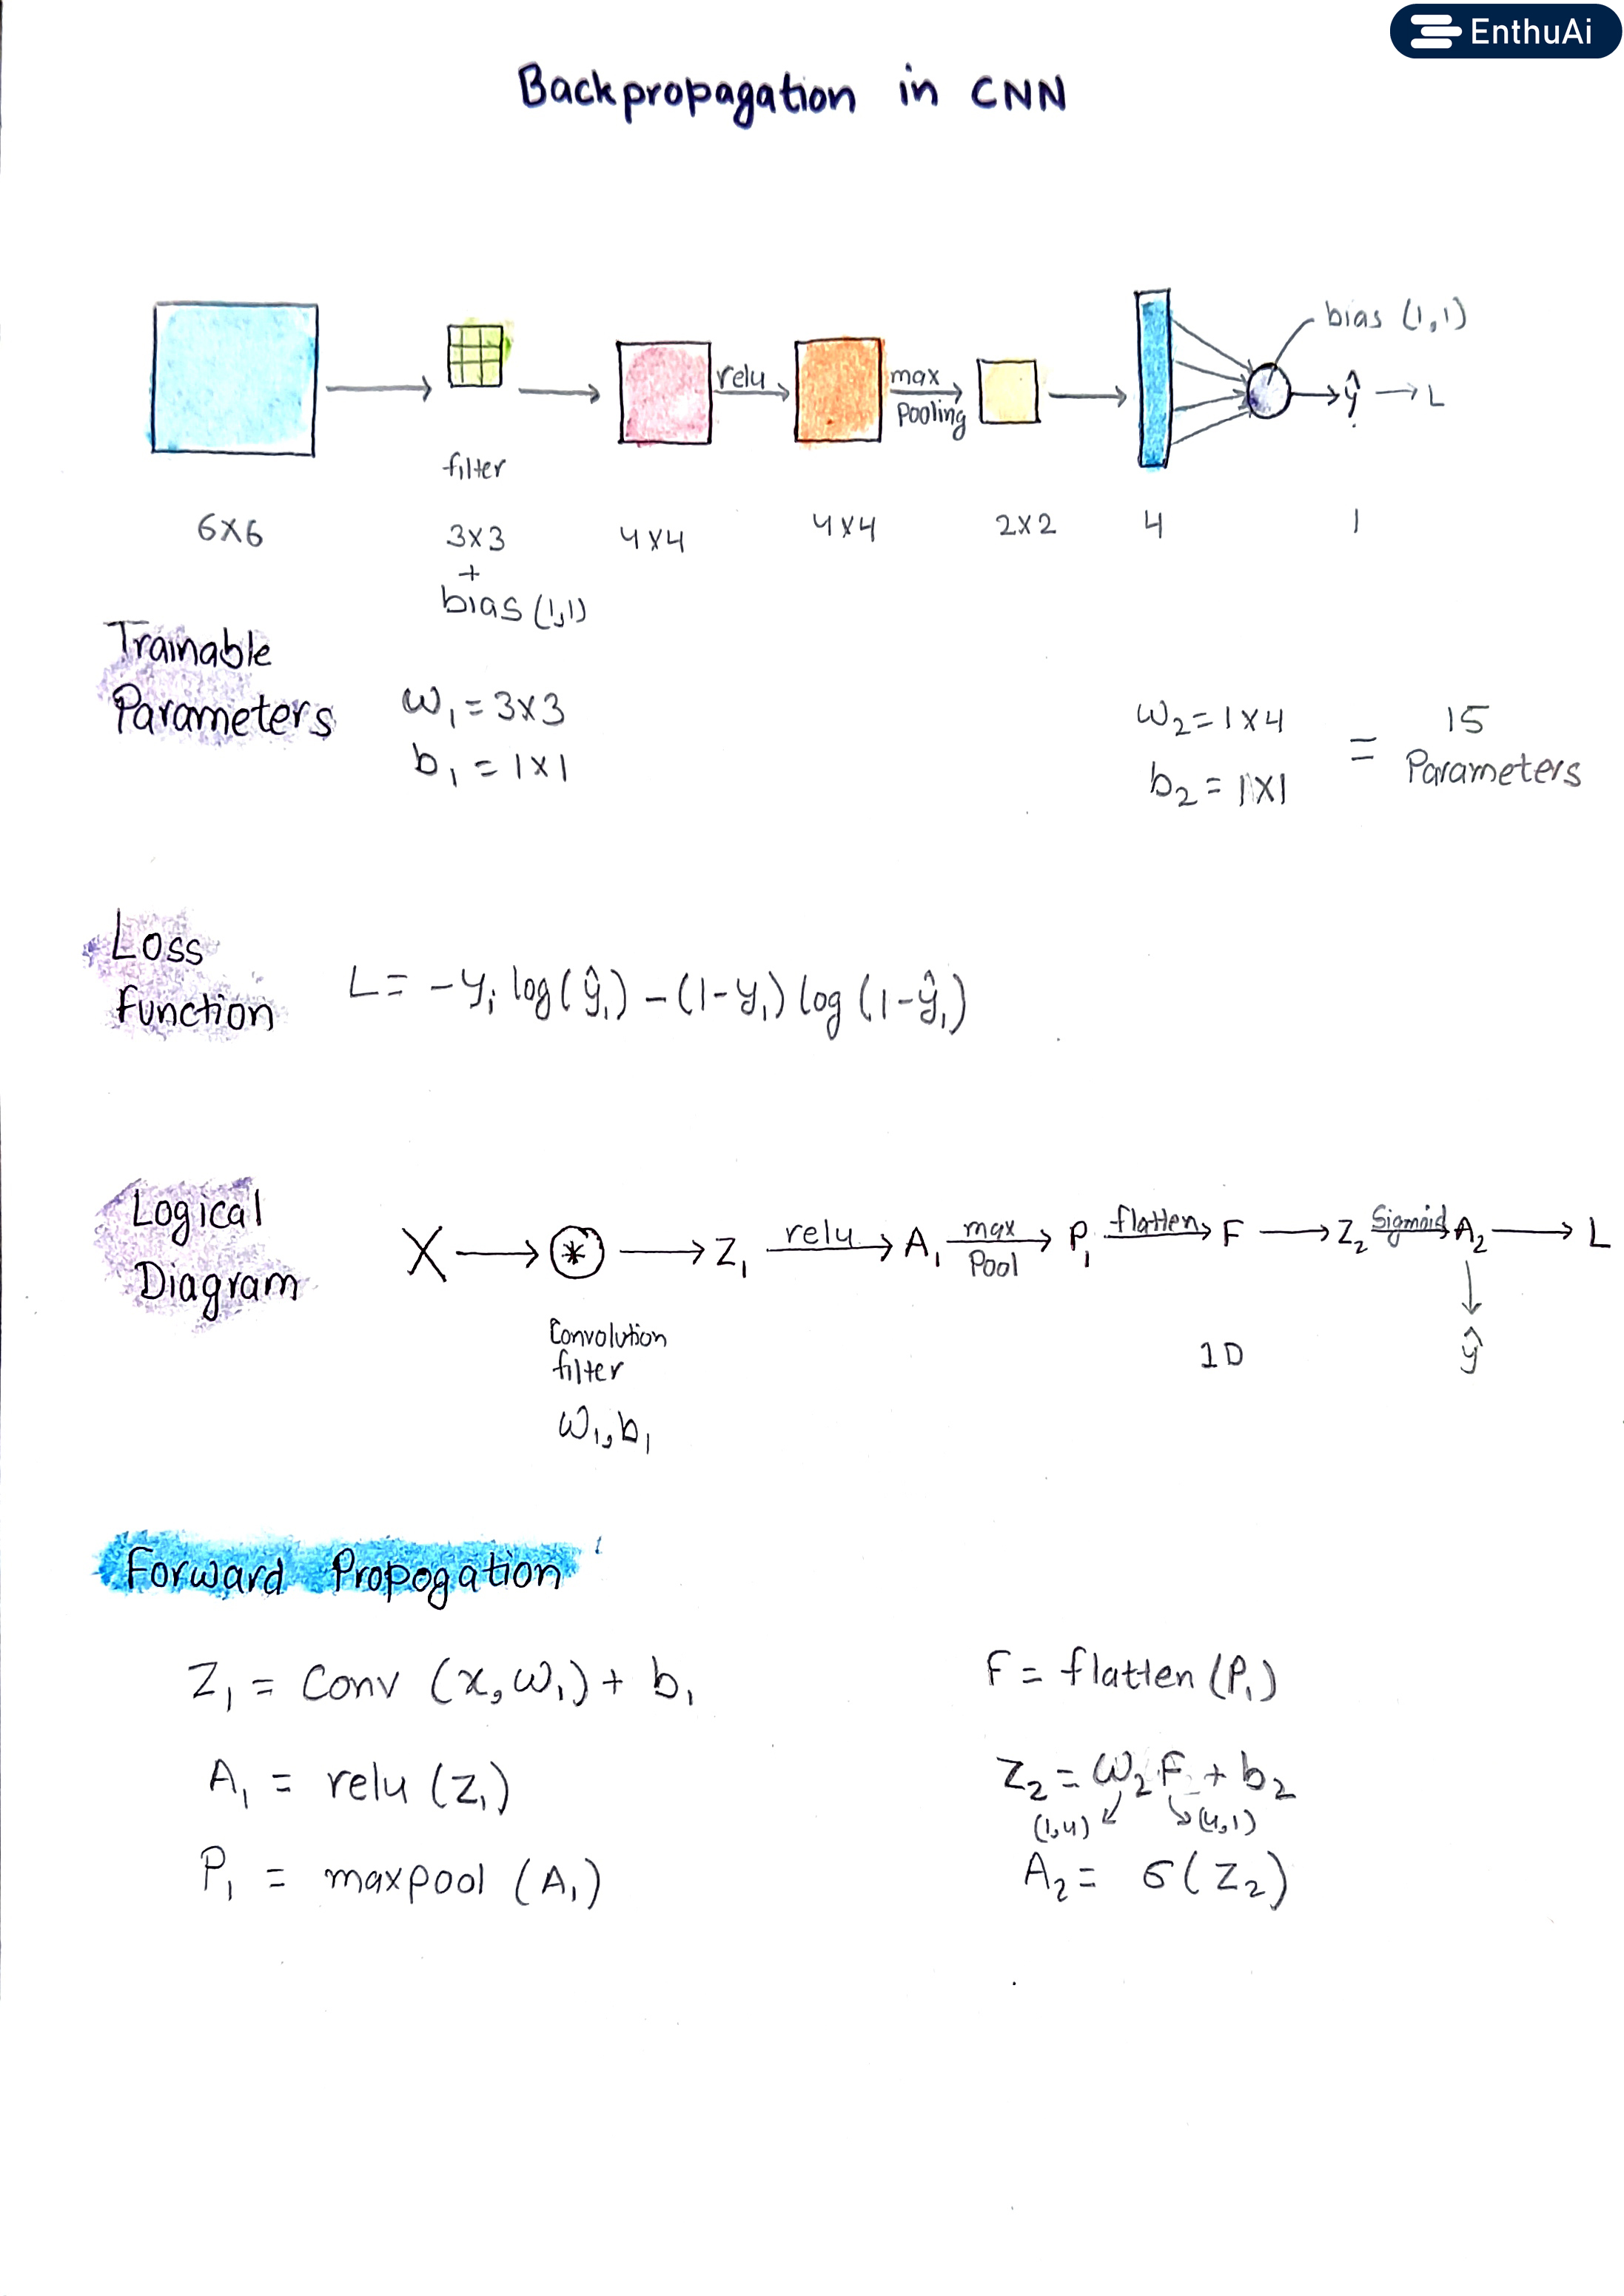 EnthuAi
Backpropagation in CNN
bias (1,1)
relu
max
Pooling
ŷ → L
filter
6X6
3X3
4X4
4X4
2X2
4
1
+
bias (1,1)
Trainable
Parameters
ω₁ = 3X3
b₁ = 1X1
ω₂ = 1X4
b₂ = 1X1
= 15
Parameters
Loss
function
L = -yᵢ log(ŷ₁) - (1-y₁) log (1-ŷ₁)
Logical
Diagram
X → (*) → Z₁ relu → A₁ max Pool → P₁ flatten → F → Z₂ Sigmoid A₂ → L
Convolution
filter
ω₁, b₁
1D
ŷ
Forward Propogation
Z₁ = Conv (x, ω₁) + b₁
A₁ = relu (Z₁)
P₁ = maxpool (A₁)
F = flatten (P₁)
Z₂ = ω₂ F + b₂
(1,4) (4,1)
A₂ = σ(Z₂)